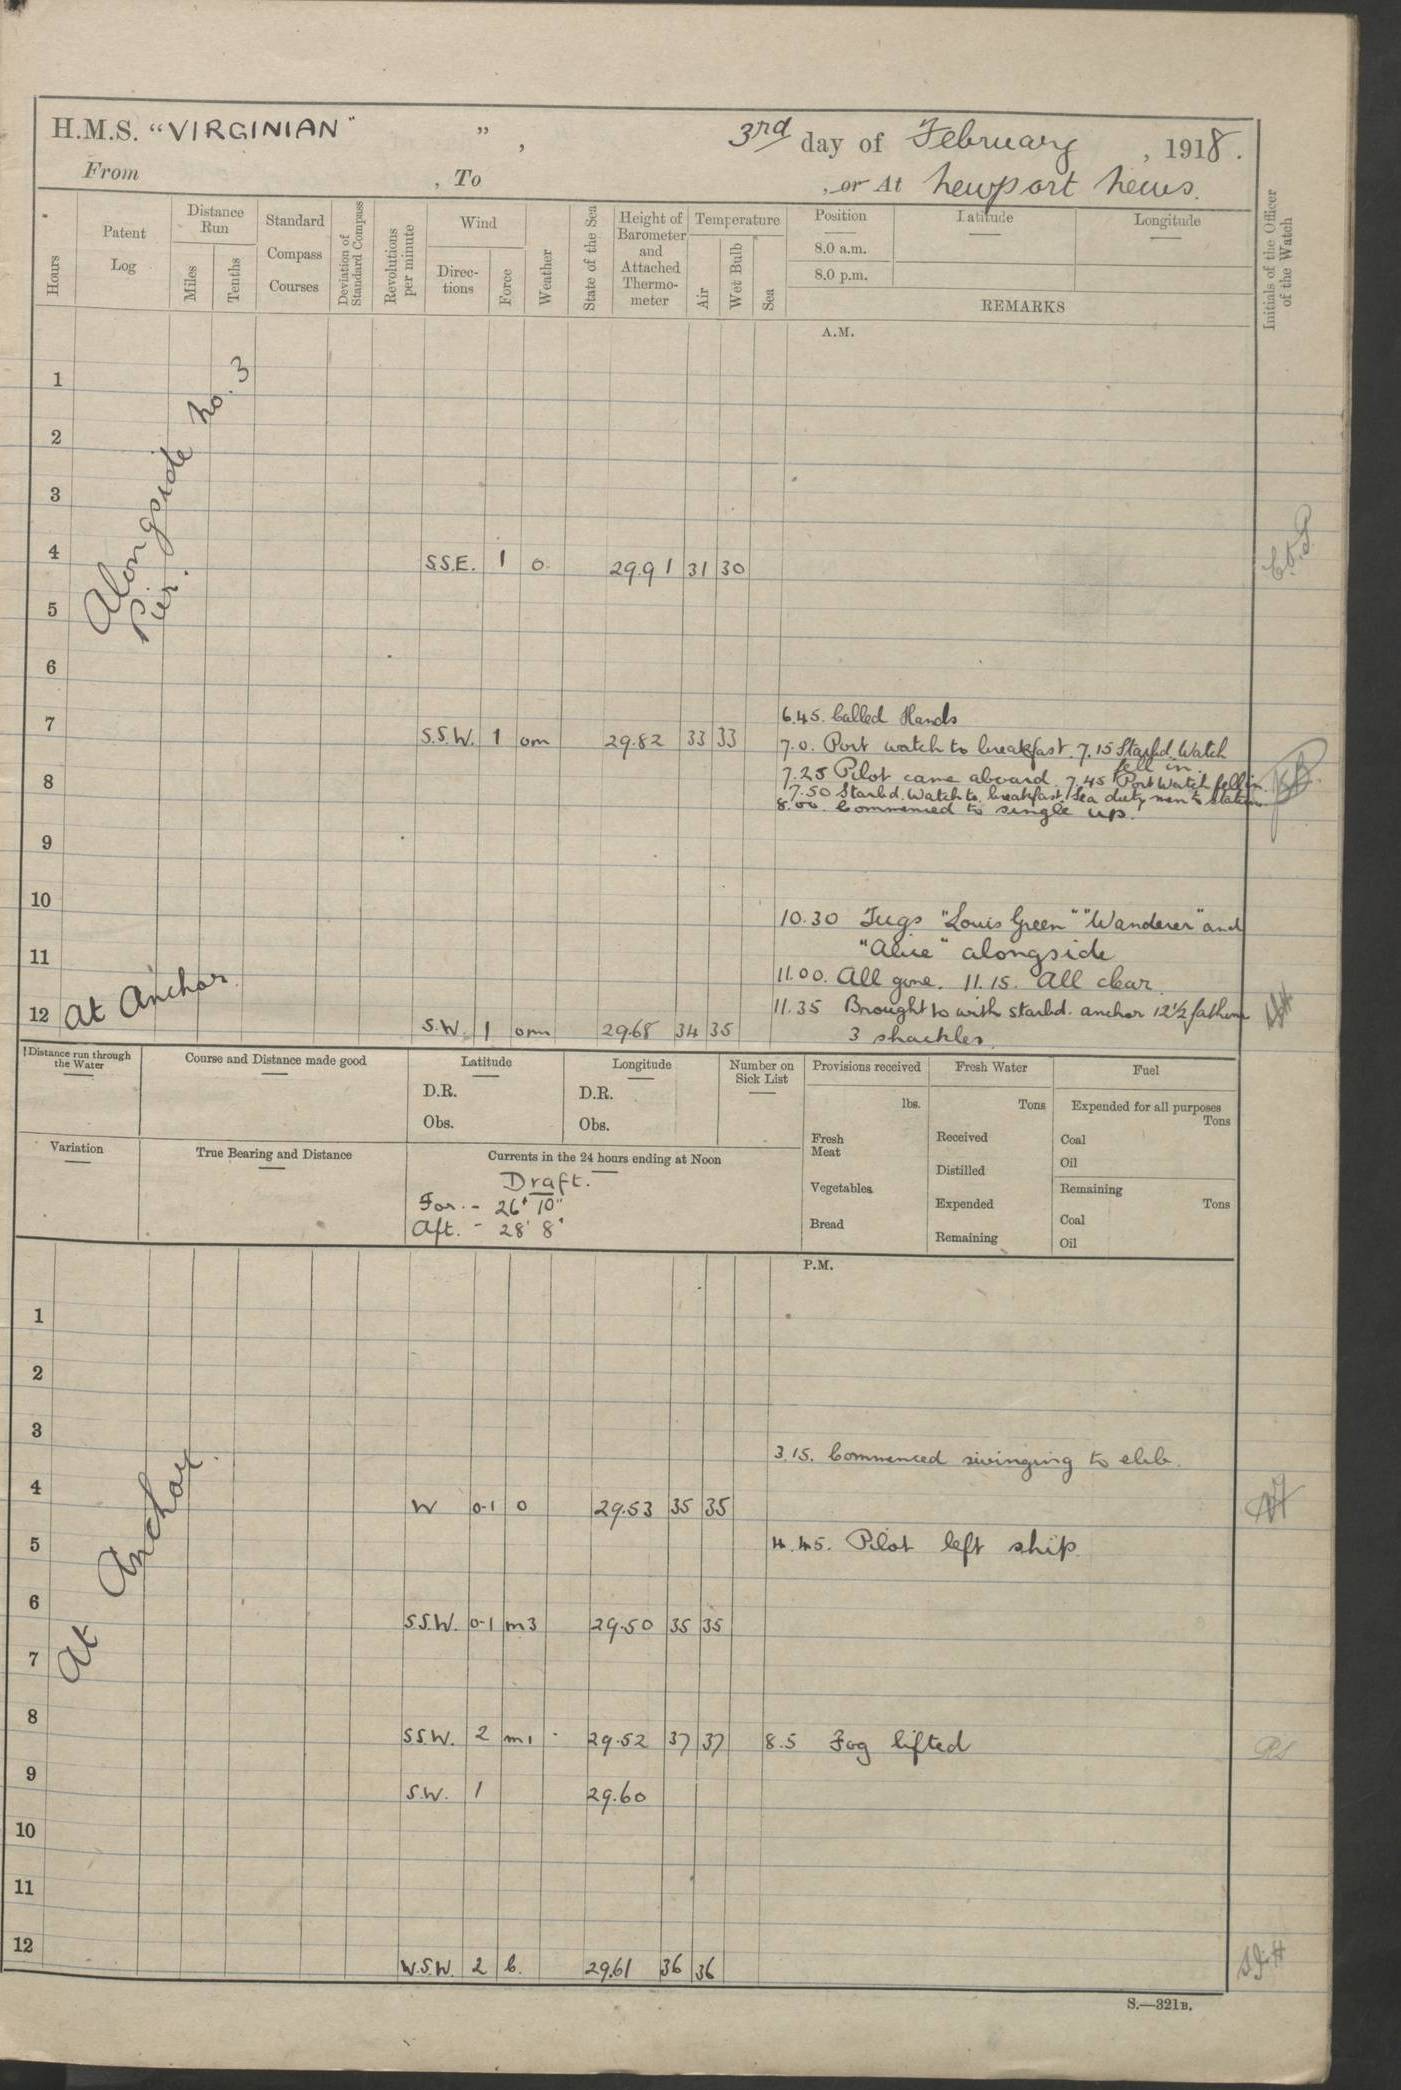 H.M.S. "VIRGINIAN" ", 3rd day of February, 1918.
From , To , or At Newport News.
Hours
Patent Log
Distance Run
Miles
Tenths
Standard Compass Courses
Deviation of Standard Compass
Revolutions per minute
Wind
Directions
Force
Weather
State of the Sea
Height of Barometer and Attached Thermometer
Temperature
Air
Wet Bulb
Sea
Position
8.0 a.m.
8.0 p.m.
Latitude
Longitude
REMARKS
Initials of the Officer of the Watch
A.M.
Alongside No. 3
Pier.
1
2
3
4 S.S.E. 1 o. 29.91 31 30
5
6
6.45. Called Hands
7 S.S.W. 1 om 29.82 33 33 7.0. Port watch to breakfast. 7.15 Starbd. Watch
fell in.
8 7.25 Pilot came aboard. 7.45 Port Watch fell in.
7.50 Starbd. Watch to breakfast, Sea duty men to station
8.00. Commenced to single up.
9
10 10.30 Tugs "Louis Green" "Wanderer" and
"Alice" alongside
11 11.00. All gone. 11.15. All clear.
At Anchor.
12 S.W. 1 om 29.68 34 35 11.35 Brought to with starbd. anchor 12½ fathoms
3 shackles.
Distance run through the Water
Course and Distance made good
Latitude
D.R.
Obs.
Longitude
D.R.
Obs.
Number on Sick List
Provisions received
lbs.
Fresh Meat
Vegetables
Bread
Fresh Water
Tons
Received
Distilled
Expended
Remaining
Fuel
Expended for all purposes
Tons
Coal
Oil
Remaining
Tons
Coal
Oil
Variation
True Bearing and Distance
Currents in the 24 hours ending at Noon
Draft.
For. - 26' 10"
Aft. - 28' 8"
P.M.
At Anchor.
1
2
3 3.15. Commenced swinging to ebb.
4 W 0-1 o 29.53 35 35
5 4.45. Pilot left ship.
6 S.S.W. 0-1 m3 29.50 35 35
7
8 S.S.W. 2 m1 29.52 37 37 8.5 Fog lifted
9 S.W. 1 29.60
10
11
12 W.S.W. 2 b. 29.61 36 36
S.—321B.